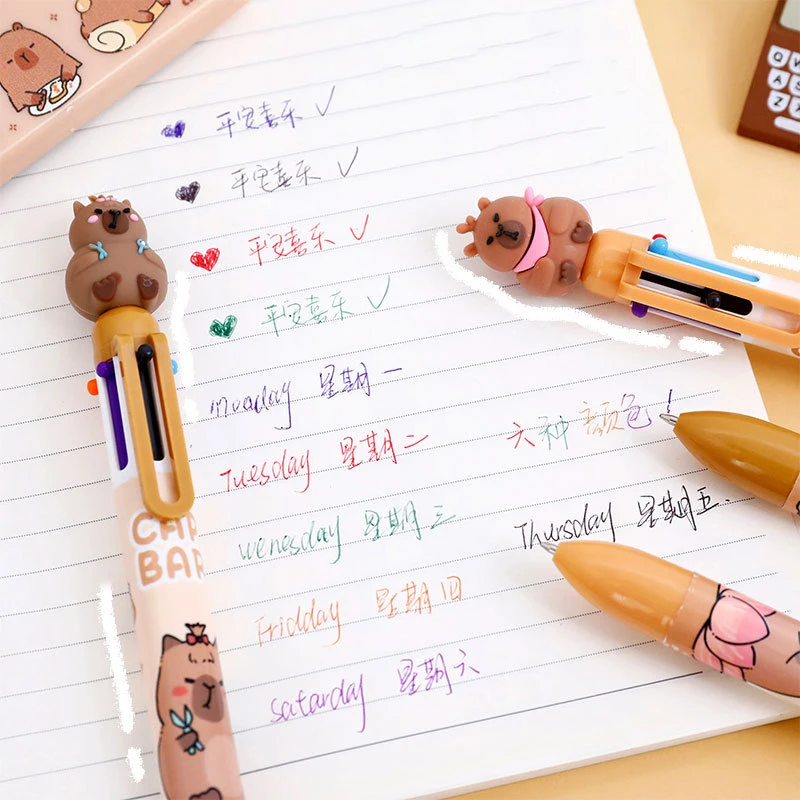 平安喜乐 ✓
平安喜乐 ✓
平安喜乐 ✓
平安喜乐 ✓
星期一
Tuesday 星期二
六种颜色!
wenesday 星期三
Thursday 星期五.
Fridday 星期四
satarday 星期六
CAP
BAR